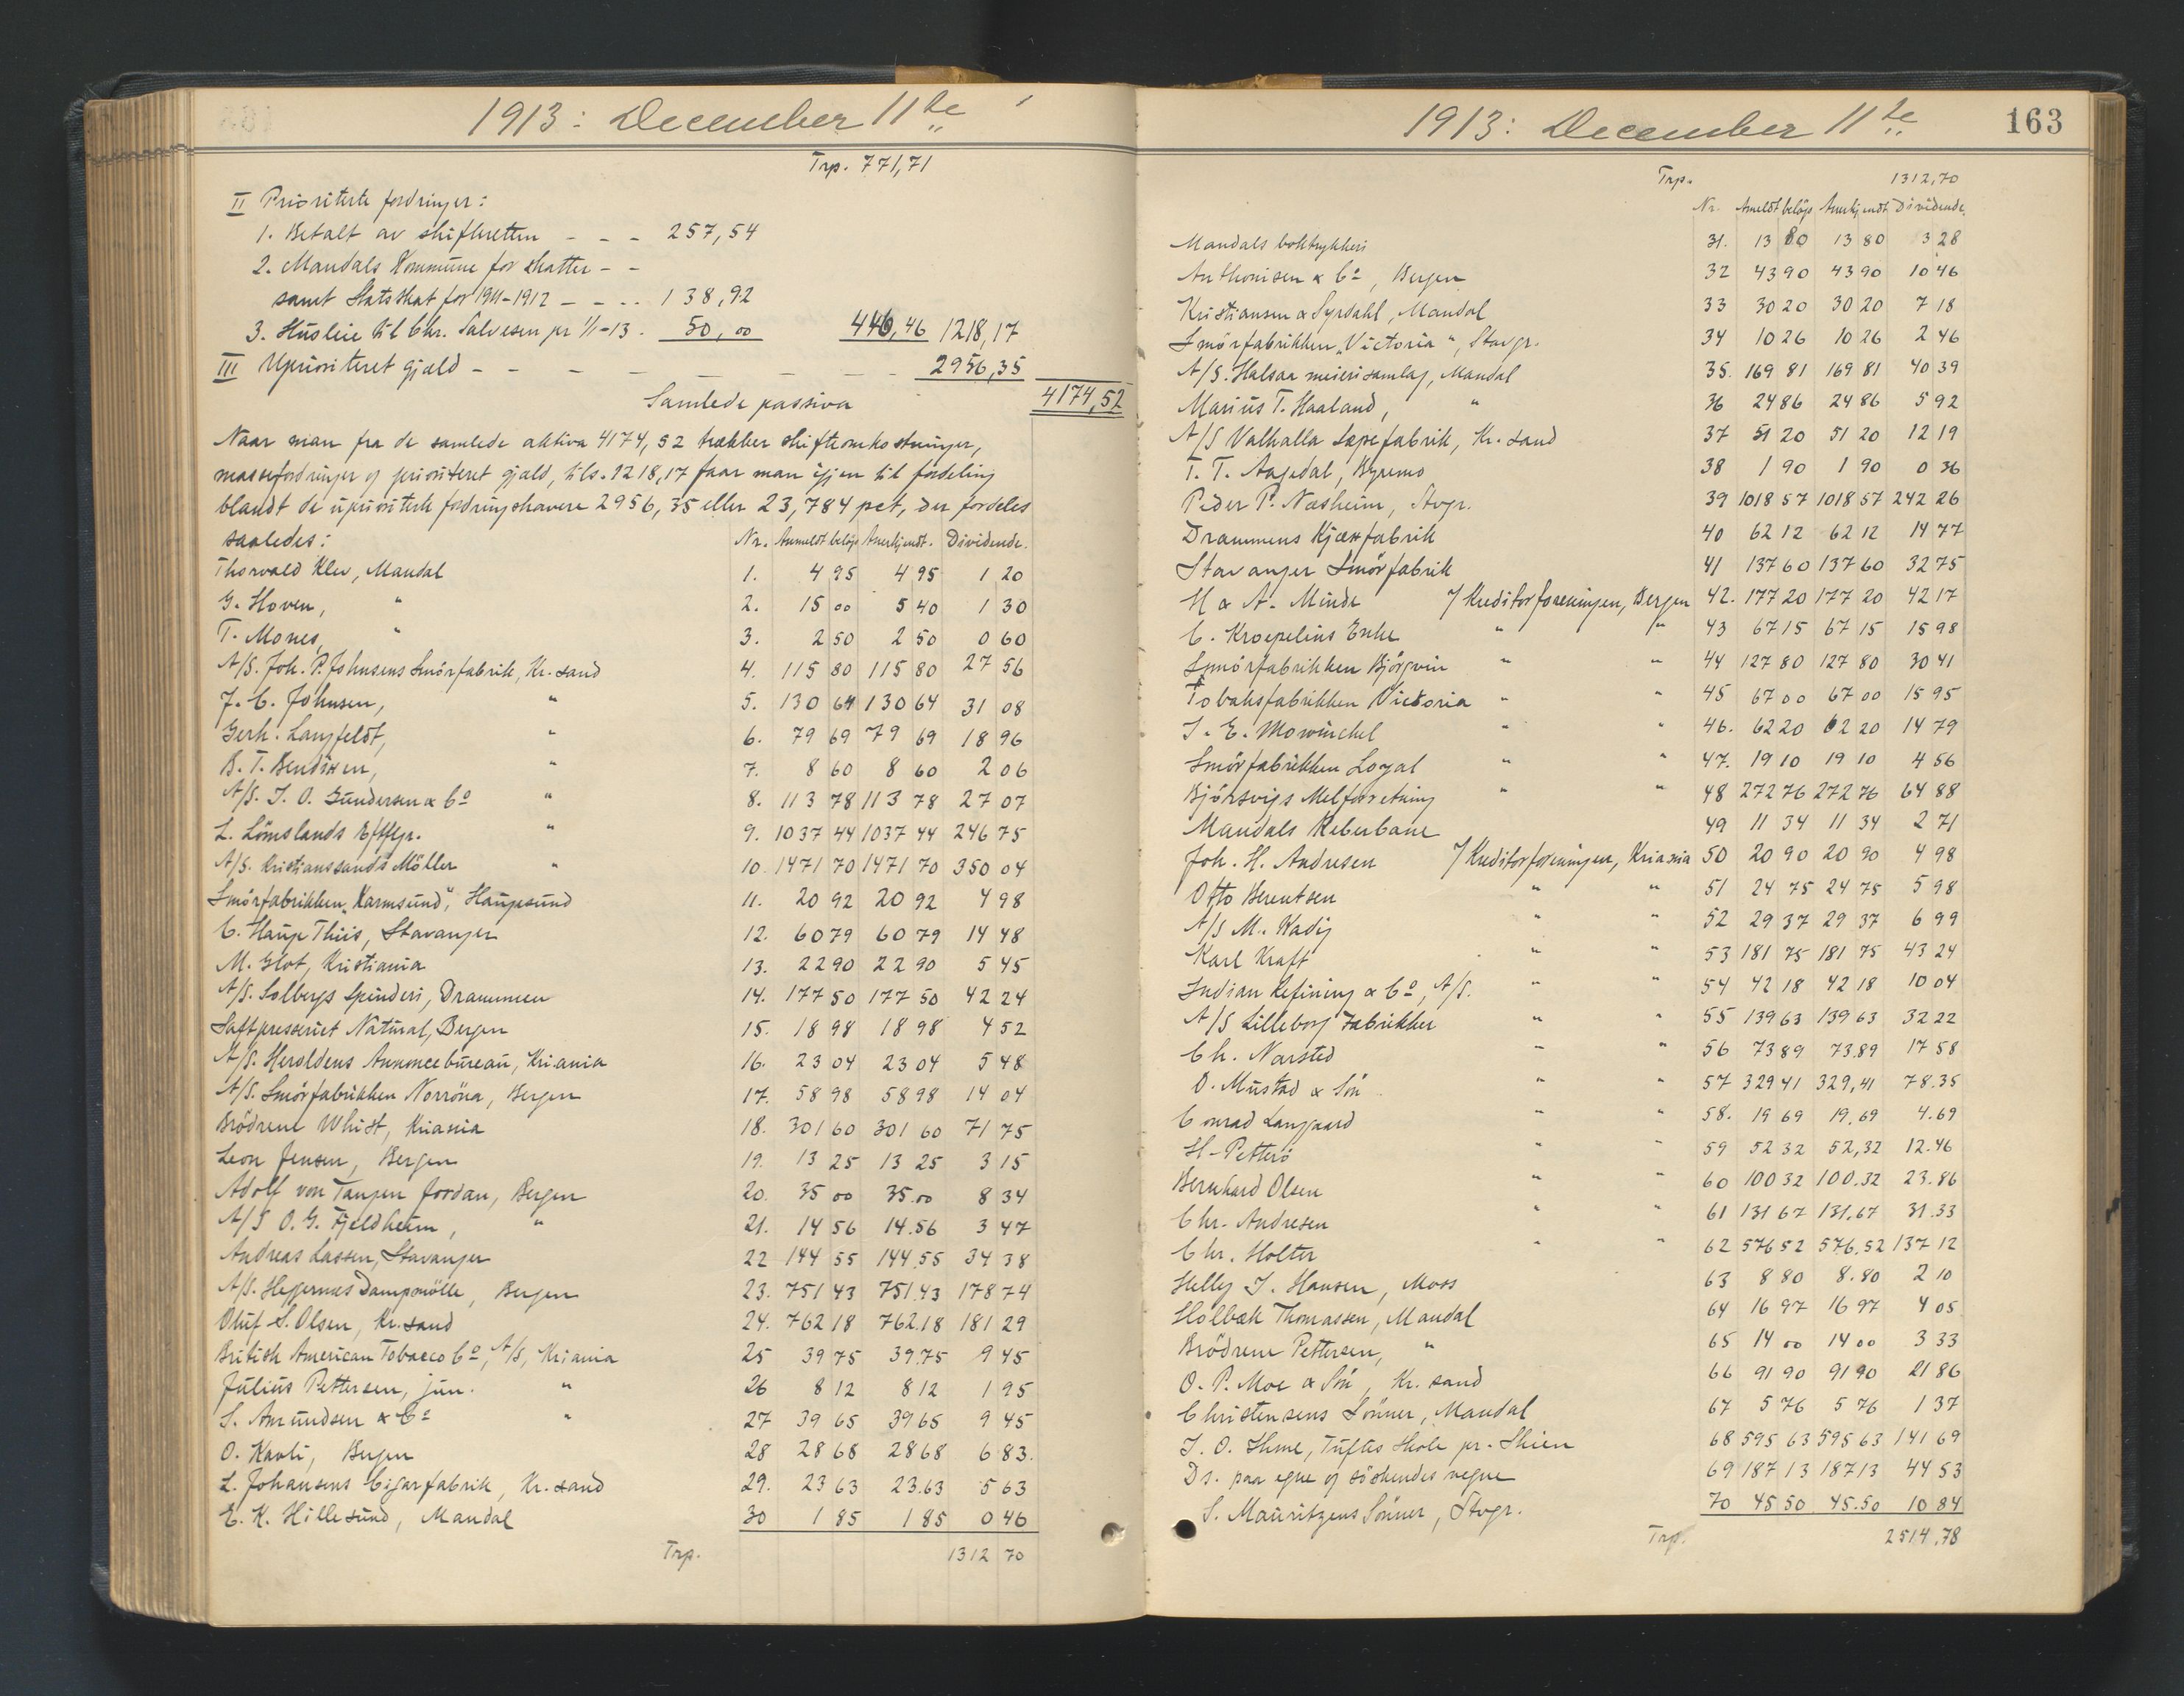 1913: December 11te
Trp. 771,71
II Prioriterte fordringer:
1. Betalt av skifteretten - - - 257,54
2. Mandals Kommune for skatter - -
samt Statsskat for 1911-1912 - - - . 138,92
3. Husleie til Chr. Salvesen pr 1/1-13. 50,00 446,46 1218,17
III Uprioriteret gjæld - - - - - - - - 2956,35
Samlede passiva 4174,52
Naar man fra de samlede aktiva 4174,52 trækker skifteomkostninger,
massefordringer og prioritert gjæld, tils. 1218,17 faar man igjen til fordeling
blandt de uprioriterte fordringshavere 2956,35 eller 23,784 pct, der fordeles
saaledes: Nr. Anmeldt beløp Anerkjendt. Dividende.
Thorvald Klev, Mandal 1. 4 95 4 95 1 20
G. Hoven, " 2. 15 00 5 40 1 30
T. Mones, " 3. 2 50 2 50 0 60
A/S. Joh. P. Johnsens Smörfabrik, Kr. sand 4. 115 80 115 80 27 56
J. C. Johnsen, " 5. 130 64 130 64 31 08
Gerh. Langfeldt, " 6. 79 69 79 69 18 96
B. T. Bendixen, " 7. 8 60 8 60 2 06
A/S. J. O. Gundersen & Co " 8. 113 78 113 78 27 07
L. Lömslands Eftflgr. " 9. 1037 44 1037 44 246 75
A/S. Kristianssands Möller " 10. 1471 70 1471 70 350 04
Smörfabrikken „Karmsund", Haugesund 11. 20 92 20 92 4 98
C. Haug Thiis, Stavanger 12. 60 79 60 79 14 48
M. Glot, Kristiania 13. 22 90 22 90 5 45
A/S. Solbergs Spinderi, Drammen 14. 177 50 177 50 42 24
Saftpresseriet Natural, Bergen 15. 18 98 18 98 4 52
A/S. Heroldens Annoncebureau, Kriania 16. 23 04 23 04 5 48
A/S. Smörfabrikken Norröna, Bergen 17. 58 98 58 98 14 04
Brödrene Whist, Kriania 18. 301 60 301 60 71 75
Leon Jensen, Bergen 19. 13 25 13 25 3 15
Adolf von Tangen Jordan, Bergen 20. 35 00 35.00 8 34
A/S O. G. Fjeldheim, " 21. 14 56 14.56 3 47
Andreas Lassen, Stavanger 22 144 55 144.55 34 38
A/S. Heggernes Dampmölle, Bergen 23. 751 43 751.43 178 74
Oluf S. Olsen, Kr. sand 24. 762 18 762.18 181 29
British American Tobacco Co, A/S, Kriania 25 39 75 39.75 9 45
Julius Pettersen, jun. " 26 8 12 8 12 1 95
S. Amundsen & Co " 27 39 65 39 65 9 45
O. Kavli, Bergen 28 28 68 28 68 6 83.
L. Johansens Cigarfabrik, Kr. sand 29. 23 63 23.63 5 63
E. K. Hillesund, Mandal 30 1 85 1 85 0 46
Trp. 1312 70
1913: December 11te
163
Trp. 1312,70
Nr. Anmeldt beløp Anerkjendt Dividende.
Mandals boktrykkeri 31. 13 80 13 80 3 28
Anthonisen & Co, Bergen 32 43 90 43 90 10 46
Kristiansen & Syrdahl, Mandal 33 30 20 30 20 7 18
Smörfabrikken „Victoria", Stavgr. 34 10 26 10 26 2 46
A/S. Halsaa meierisamlag, Mandal 35. 169 81 169 81 40 39
Marius T. Haaland, " 36 24 86 24 86 5 92
A/S Valhalla Sæpefabrik, Kr. sand 37 51 20 51 20 12 19
T. T. Aagedal, Byremo 38 1 90 1 90 0 36
Peder P. Næsheim, Stvgr. 39 1018 57 1018 57 242 26
Drammens Kjæxfabrik 40 62 12 62 12 14 77
Stavanger Smörfabrik 41 137 60 137 60 32 75
H & A. Minde 7/ Kreditorforeningen, Bergen 42. 177 20 177 20 42 17
C. Kroepelins Enke " " 43 67 15 67 15 15 98
Smörfabrikken Björgvin " " 44 127 80 127 80 30 41
Tobaksfabrikken Victoria " " 45 67 00 67 00 15 95
J. E. Mowinckel " " 46. 62 20 62 20 14 79
Smörfabrikken Loyal " " 47. 19 10 19 10 4 56
Björsvigs Melforretning " " 48 272 76 272 76 64 88
Mandals Reberbane 49 11 34 11 34 2 71
Joh. H. Andresen 7/ Kreditorforeningen, Kriania 50 20 90 20 90 4 98
Otto Berentsen " " 51 24 75 24 75 5 98
A/S M. Wadig " " 52 29 37 29 37 6 99
Karl Kraft " " 53 181 75 181 75 43 24
Indian Refining & Co, A/S. " " 54 42 18 42 18 10 04
A/S Lilleborg Fabrikker " " 55 139 63 139 63 32 22
Ch. Narsted " " 56 73 89 73.89 17 58
O. Mustad & Sön " " 57 329 41 329,41 78.35
Conrad Langgaard " " 58. 19 69 19.69 4.69
H. Petterö " " 59 52 32 52,32 12.46
Bernhard Olsen " " 60 100 32 100.32 23.86
Chr. Andresen " " 61 131 67 131,67 31.33
Chr. Holter " " 62 576 52 576,52 137 12
Helly J. Hansen, Moss 63 8 80 8.80 2 10
Holbæk Thomassen, Mandal 64 16 97 16 97 4 05
Brödrene Pettersen, " 65 14 00 14 00 3 33
O. P. Moe & Sön, Kr. sand 66 91 90 91 90 21 86
Christensens Sönner, Mandal 67 5 76 5 76 1 37
J. O. Ihme, Tuftes Skole pr. Skien 68 595 63 595 63 141 69
Ds. paa egne og söskendes vegne 69 187 13 187 13 44 53
S. Mauritzens Sönner, Stvgr. 70 45 50 45.50 10 84
Trp. 2514,78